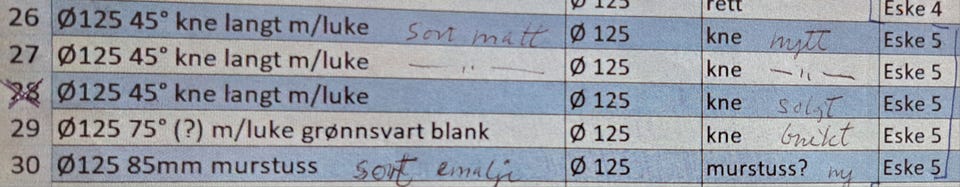 Ø 125 rett Eske 4
26 Ø125 45° kne langt m/luke sort matt Ø 125 kne nytt Eske 5
27 Ø125 45° kne langt m/luke — " — Ø 125 kne — " — Eske 5
28 Ø125 45° kne langt m/luke Ø 125 kne solgt Eske 5
29 Ø125 75° (?) m/luke grønnsvart blank Ø 125 kne brukt Eske 5
30 Ø125 85mm murstuss sort emalje Ø 125 murstuss? ny Eske 5